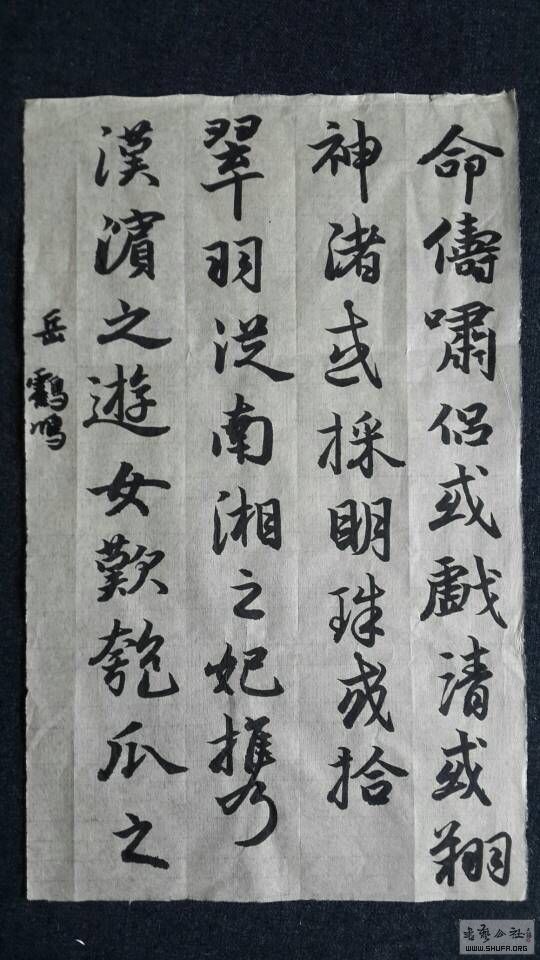 命儔嘯侶或戲清或翔
神渚或採明珠或拾
翠羽從南湘之妃攜
漢濱之遊女歎匏瓜之
岳鶴鳴
书艺公社
WWW.SHUFA.ORG